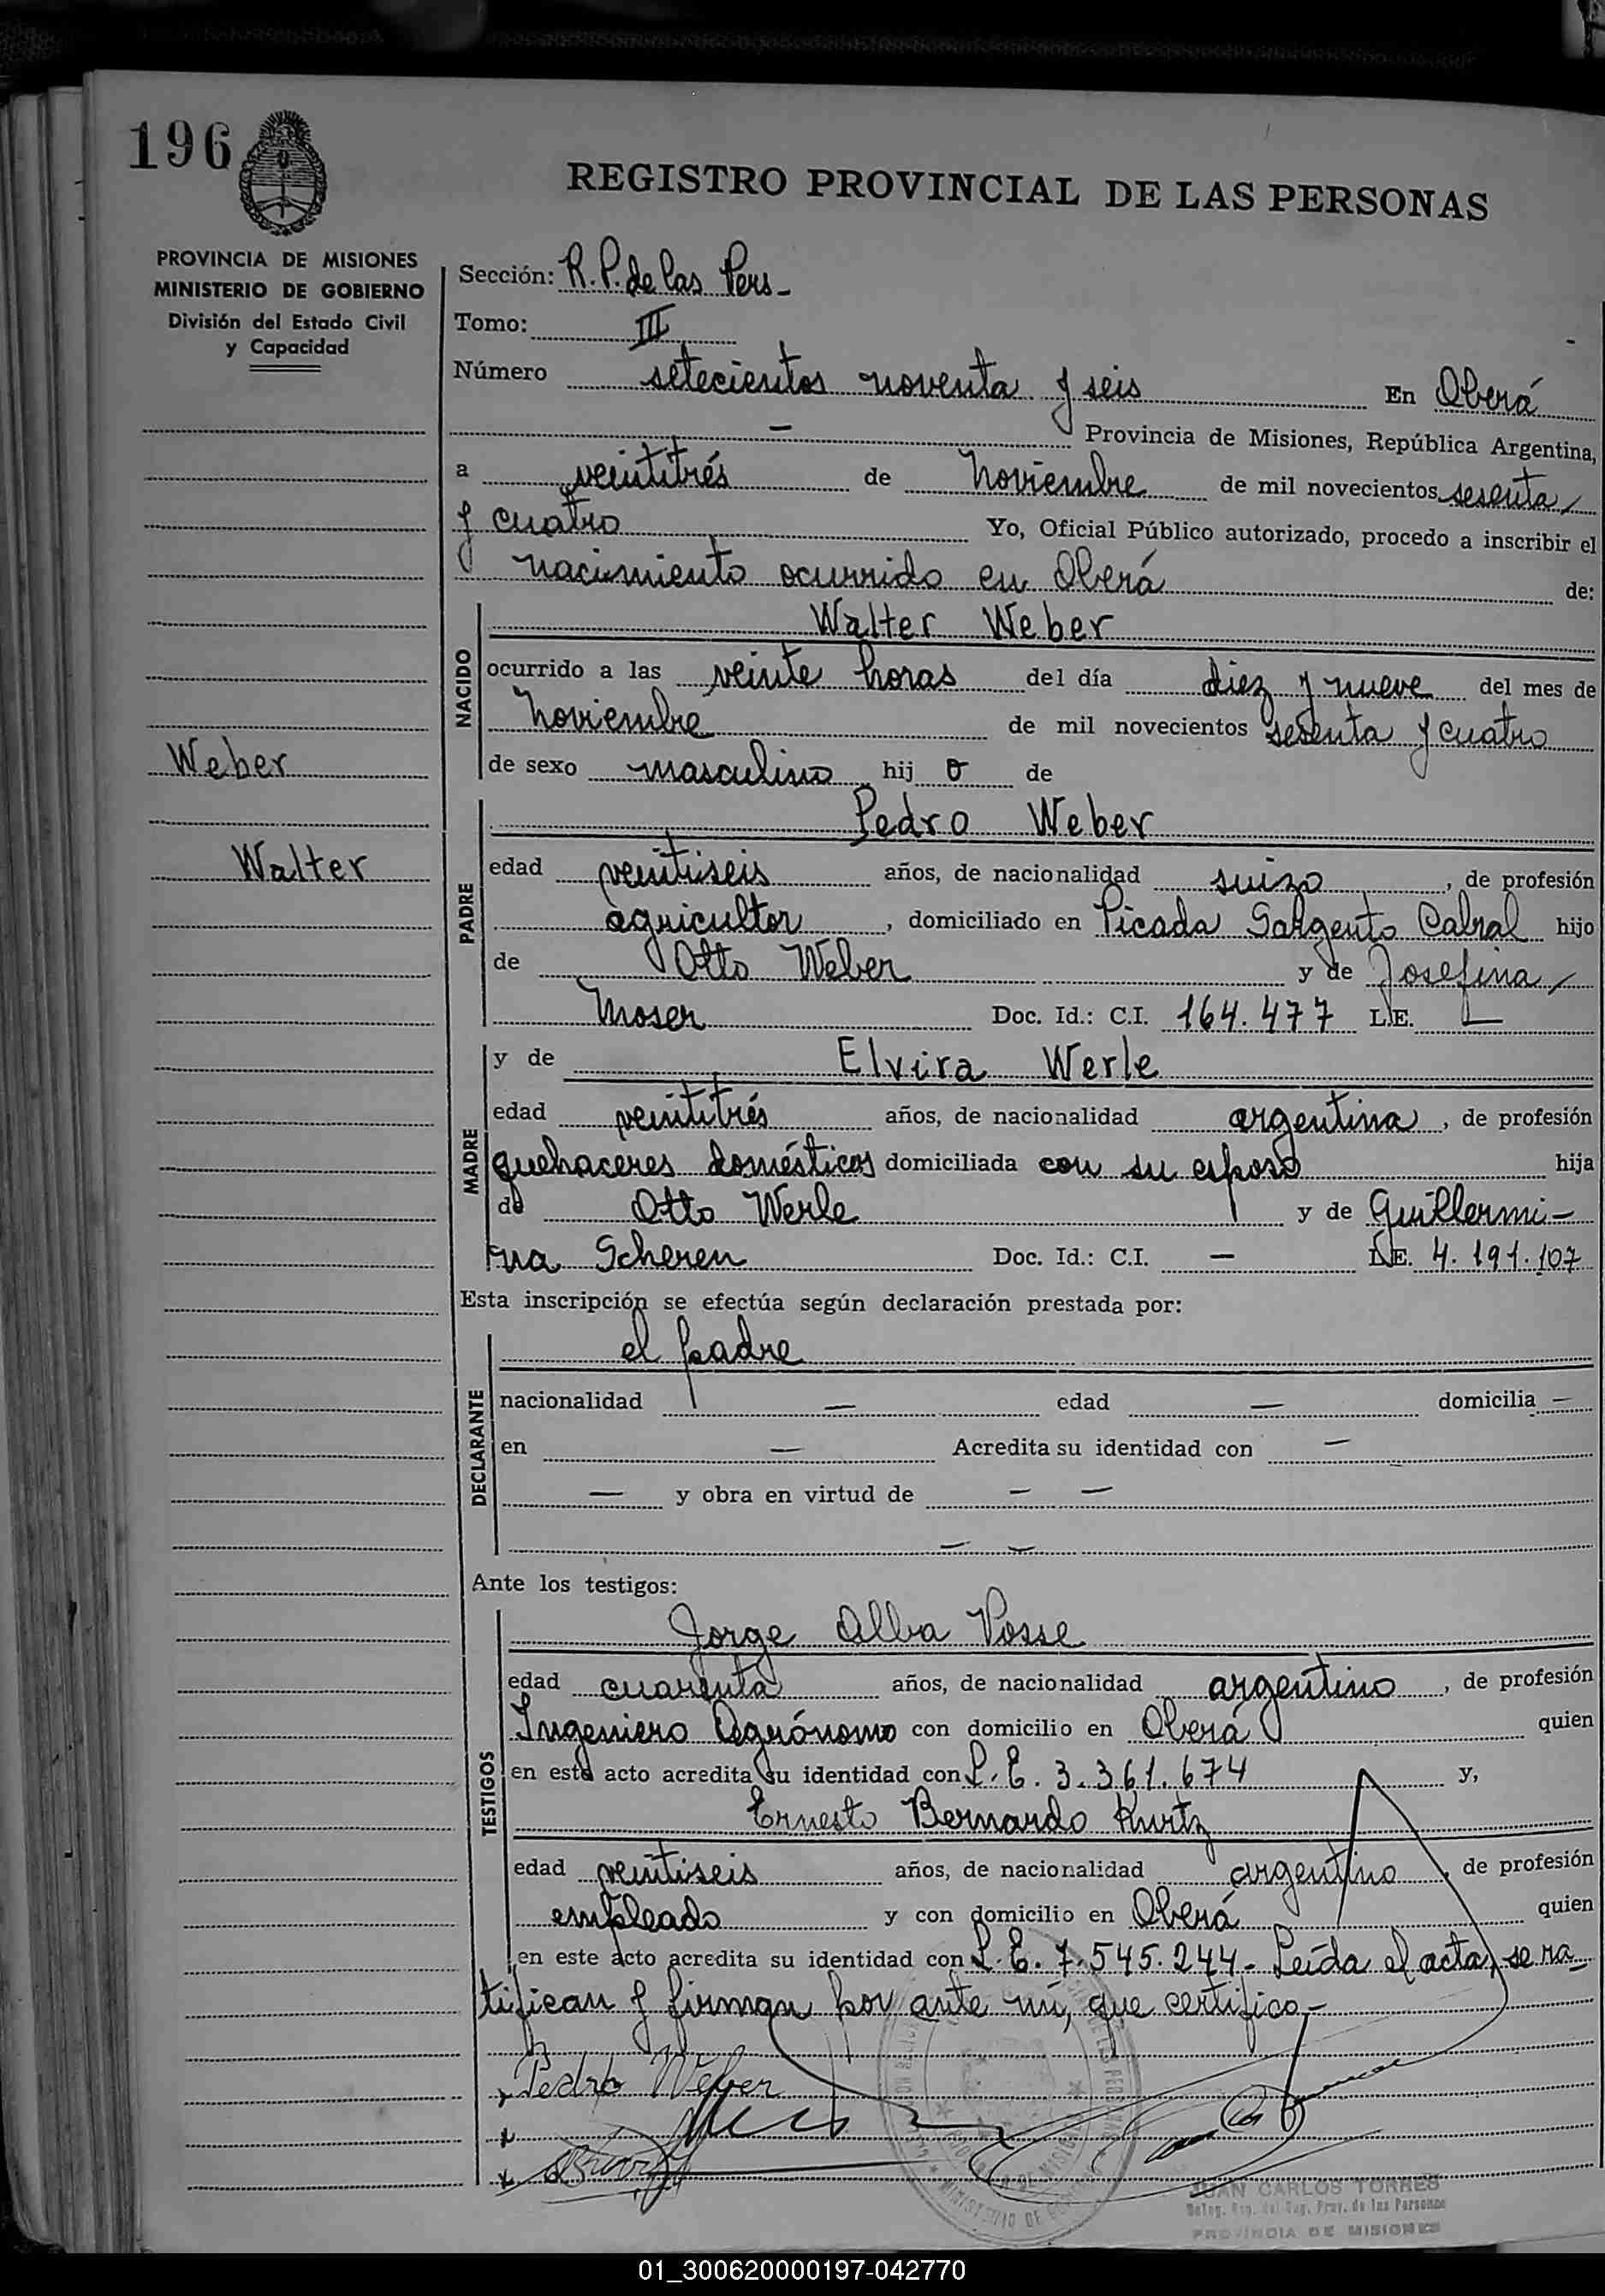 196
REGISTRO PROVINCIAL DE LAS PERSONAS
PROVINCIA DE MISIONES
MINISTERIO DE GOBIERNO
División del Estado Civil
y Capacidad
Sección: R.P. de las Pers-
Tomo: III
Número setecientos noventa y seis En Oberá
— Provincia de Misiones, República Argentina,
a veintitrés de Noviembre de mil novecientos sesenta
y cuatro Yo, Oficial Público autorizado, procedo a inscribir el
nacimiento ocurrido en Oberá de:
NACIDO
Walter Weber
ocurrido a las veinte horas del día diez y nueve del mes de
Noviembre de mil novecientos sesenta y cuatro
Weber
de sexo masculino hij o de
PADRE
Pedro Weber
Walter
edad veintiseis años, de nacionalidad suizo, de profesión
agricultor, domiciliado en Picada Sargento Cabral hijo
de Otto Weber y de Josefina
Moser Doc. Id.: C.I. 164.477 L.E. —
MADRE
y de Elvira Werle
edad veintitrés años, de nacionalidad argentina, de profesión
quehaceres domésticos domiciliada con su esposo hija
de Otto Werle y de Guillermi-
na Scheren Doc. Id.: C.I. — L.E. 4.191.107
Esta inscripción se efectúa según declaración prestada por:
DECLARANTE
el padre
nacionalidad — edad — domicilia —
en — Acredita su identidad con —
— y obra en virtud de — —
— —
Ante los testigos:
TESTIGOS
Jorge Alba Posse
edad cuarenta años, de nacionalidad argentino, de profesión
Ingeniero Agrónomo con domicilio en Oberá quien
en este acto acredita su identidad con L.E. 3.361.674 y,
Ernesto Bernardo Kurtz
edad veintiseis años, de nacionalidad argentino, de profesión
empleado y con domicilio en Oberá quien
en este acto acredita su identidad con L.E. 7.545.244.- Leída el acta, se ra-
tifican y firman por ante mí, que certifico.-
Pedro Weber
JUAN CARLOS TORRES
Deleg. Reg. Prov. de las Personas
PROVINCIA DE MISIONES
01_300620000197-042770